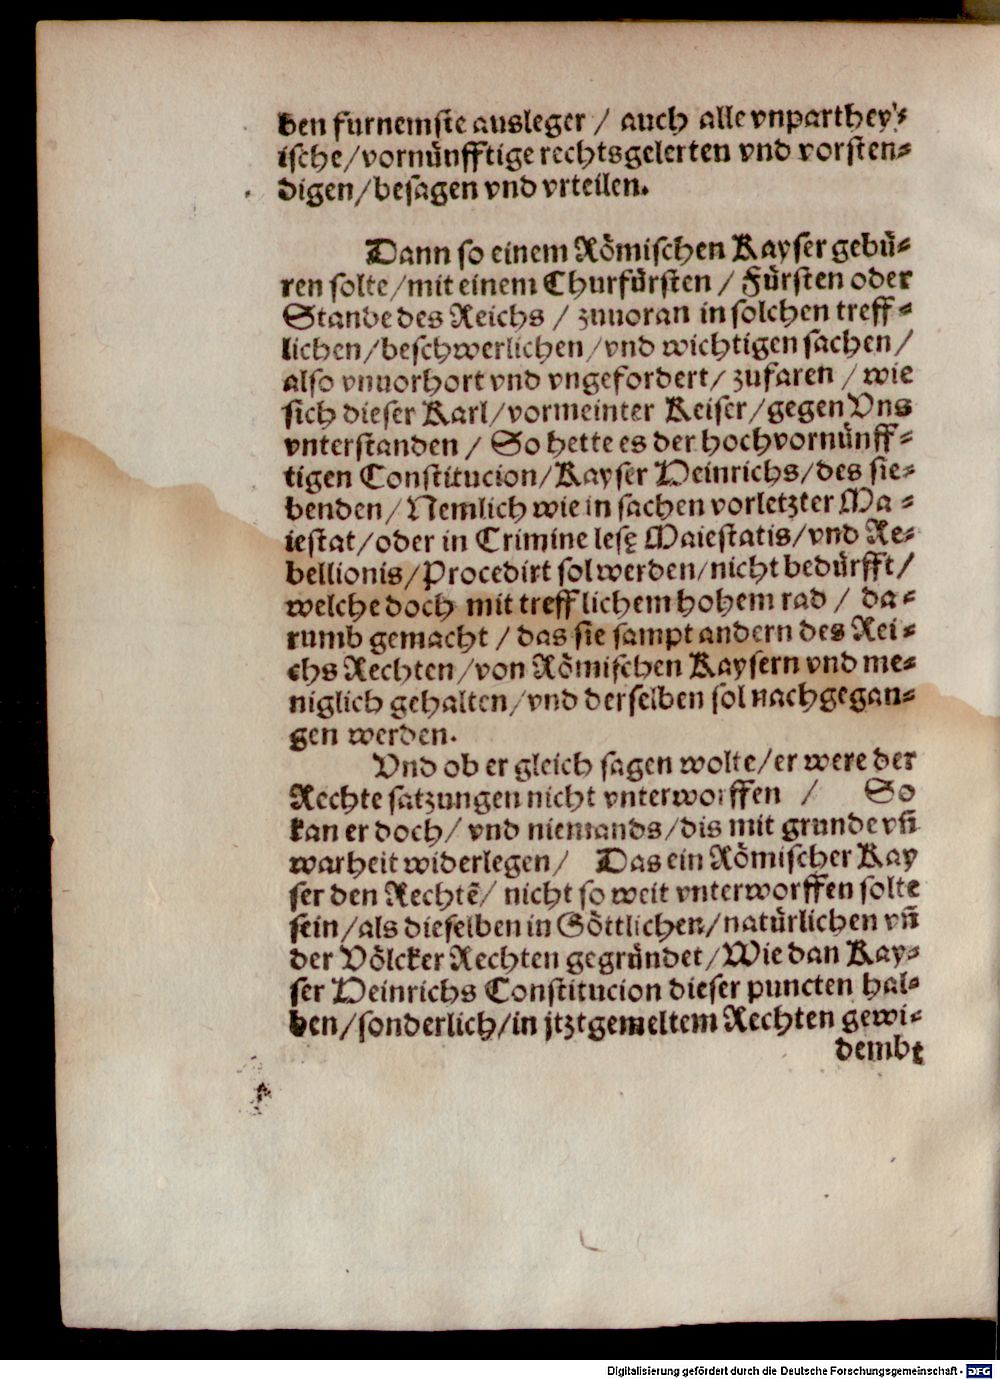 ben furnemste ausleger / auch alle vnparthey⸗
ische/vornünfftige rechtsgelerten vnd vorsten⸗
digen/besagen vnd vrteilen.
Dann so einem Römischen Kayser gebü⸗
ren solte/mit einem Churfürsten / Fürsten oder
Stande des Reichs / zuuoran in solchen treff⸗
lichen/beschwerlichen/vnd wichtigen sachen/
also vnuorhort vnd vngefordert/ zufaren / wie
sich dieser Karl/vormeinter Keiser/gegen Vns
vnterstanden / So hette es der hochvornünff⸗
tigen Constitucion/Kayser Heinrichs/des sie⸗
benden/Nemlich wie in sachen vorletzter Ma⸗
iestat/oder in Crimine lesę Maiestatis/vnd Re⸗
bellionis/Procedirt sol werden/nicht bedürfft/
welche doch mit trefflichem hohem rad / da⸗
rumb gemacht / das sie sampt andern des Rei⸗
chs Rechten/von Römischen Kaysern vnd me⸗
niglich gehalten/vnd derselben sol nachgegan⸗
gen werden.
Vnd ob er gleich sagen wolte/er were der
Rechte satzungen nicht vnterworffen / So
kan er doch/ vnd niemands/dis mit grunde vñ
warheit widerlegen/ Das ein Römischer Kay
ser den Rechtē/ nicht so weit vnterworffen solte
sein/als dieselben in Göttlichen/natürlichen vñ
der Völcker Rechten gegründet/Wie dan Kay⸗
ser Heinrichs Constitucion dieser puncten hal⸗
ben/sonderlich/in jtztgemeltem Rechten gewi⸗
dembt
Digitalisierung gefördert durch die Deutsche Forschungsgemeinschaft - DFG